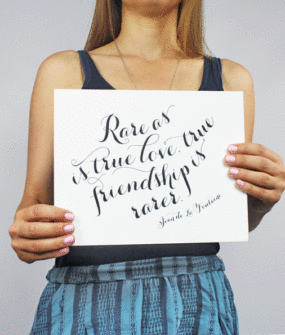 Rare as
is true love, true
friendship is
rarer.
Jean de La Fontaine